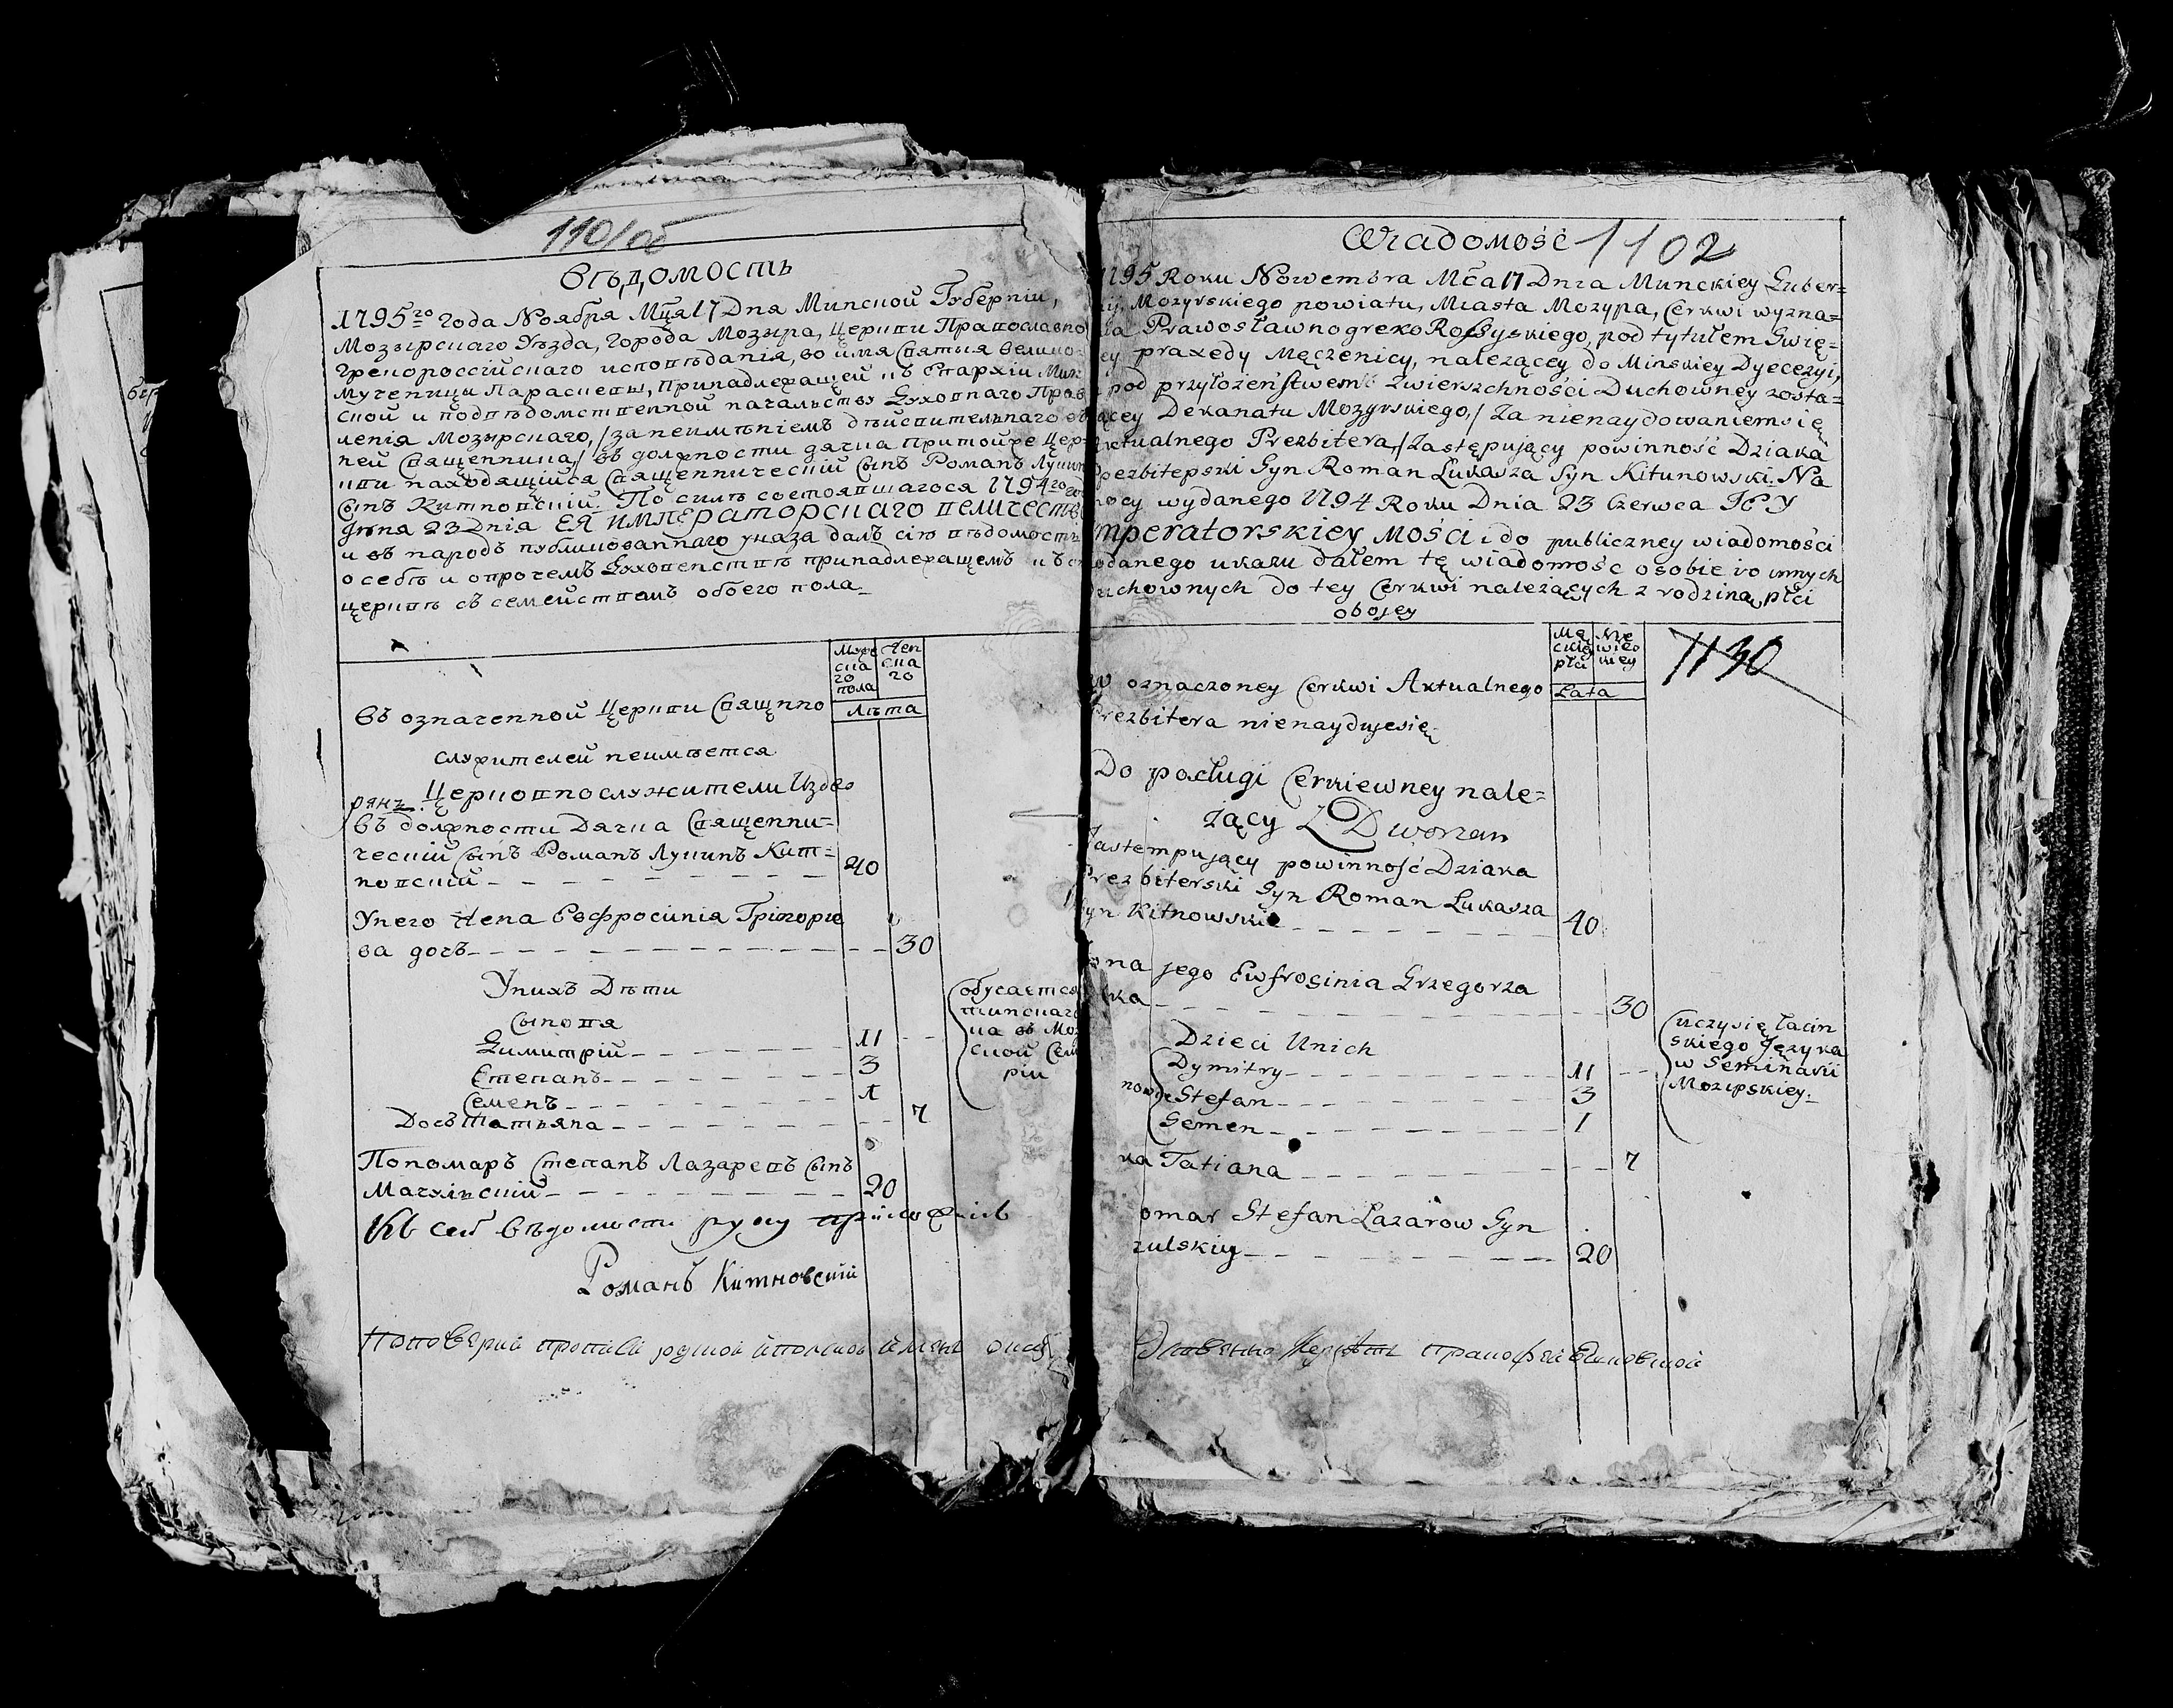 110/об
Вѣдомость
1795го года Ноября Мца 17 Дня Минской Губерніи,
Мозырскаго Уѣзда, города Мозыра, Церкви Православно
грекороссійскаго исповѣданія, во имя Святыя велико-
мученицы Параскевы, Принадлежащей къ Епархіи Мин
ской и подвѣдомственной начальству Духовнаго Прав
ленія Мозырскаго, /за неимѣніемъ дѣйствительнаго
ней Священника,/ въ должности дячка притойже Цер-
кви находящийся Священнический Сынъ Романъ Лукин
Сынъ Китновский. По силѣ состоявшагося 1794го го
Іюня 23 Дня ЕЯ ИМПЕРАТОРСКАГО величеств
и въ народъ публикованнаго указа далъ сію вѣдомость
о себѣ и опрочемъ Духовенствѣ принадлежащемъ къ
церквѣ съ семействомъ обоего пола
Муже Жен
ска ска
го го
пола
Лѣта
Въ означенной Церкви Священно
служителей неимѣется
Церковнослужители Издво
рянъ
Въ должности Дячка Священни=
ческий Сынъ Романъ Лукинъ Кит=
новский 40
Унего Жена Евфросиния Григорие
ва дочь 30
Унихъ Дѣти
Сыновя
Димитрій 11
Степанъ 3
Семенъ 1
Дочь Татьяна 7
обучается
тинскаго
ка въ Моз
ской Сем
ріи
Пономаръ Степанъ Лазаревъ Сынъ
20
Къ сей вѣдомости руку приложилъ
Романъ Китновский
Wiadomość 1102
1795 Roku Nowembra Mca 17 Dnia Minckiey Guber=
nij, Mozyrskiego powiatu, Miasta Mozyra, Cerkwi wyzna=
nia Prawosławnogreko Rossyskiego, pod tytułem Swię=
tey praxedy Męczenicy, należącey do Minskiey Dyecezyi,
pod przyłożeństwem zwierzchności Duchowney zosta=
iącey Dekanatu Mozyrskiego,/ Za nienaydowaniemsię
Aktualnego Prezbitera,/ Zastępujący powinność Dziaka
Prezbiterski Syn Roman Lukasza Syn Kitunowski. Na
mocy wydanego 1794 Roku Dnia 23 Czerwca JEY
Imperatorskiey Mości i do publiczney wiadomości
podanego ukazu dałem tę wiadomość osobie i o innych
Duchownych do tey Cerkwi należących z rodziną płci
obojey
Mę Nie
skiey wies
płci kiey
Lata
1130
W oznaczoney Cerkwi Aktualnego
Prezbitera nienaydujesię
Do posługi Cerkiewney nale=
żący Z Dworzan
Zastempujący powinność Dziaka
Prezbiterski Syn Roman Lukasza
Syn Kitnowski 40
Zona jego Ewfrosinia Grzegorza
rka 30
Dzieci Unich
Dymitry 11
nowie Stefan 3
Semen 1
ka Tatiana 7
uczysię łacin
skiego Języka
w Seminarii
Mozyrskiey.
omar Stefan Lazarow Syn
zulskiy 20